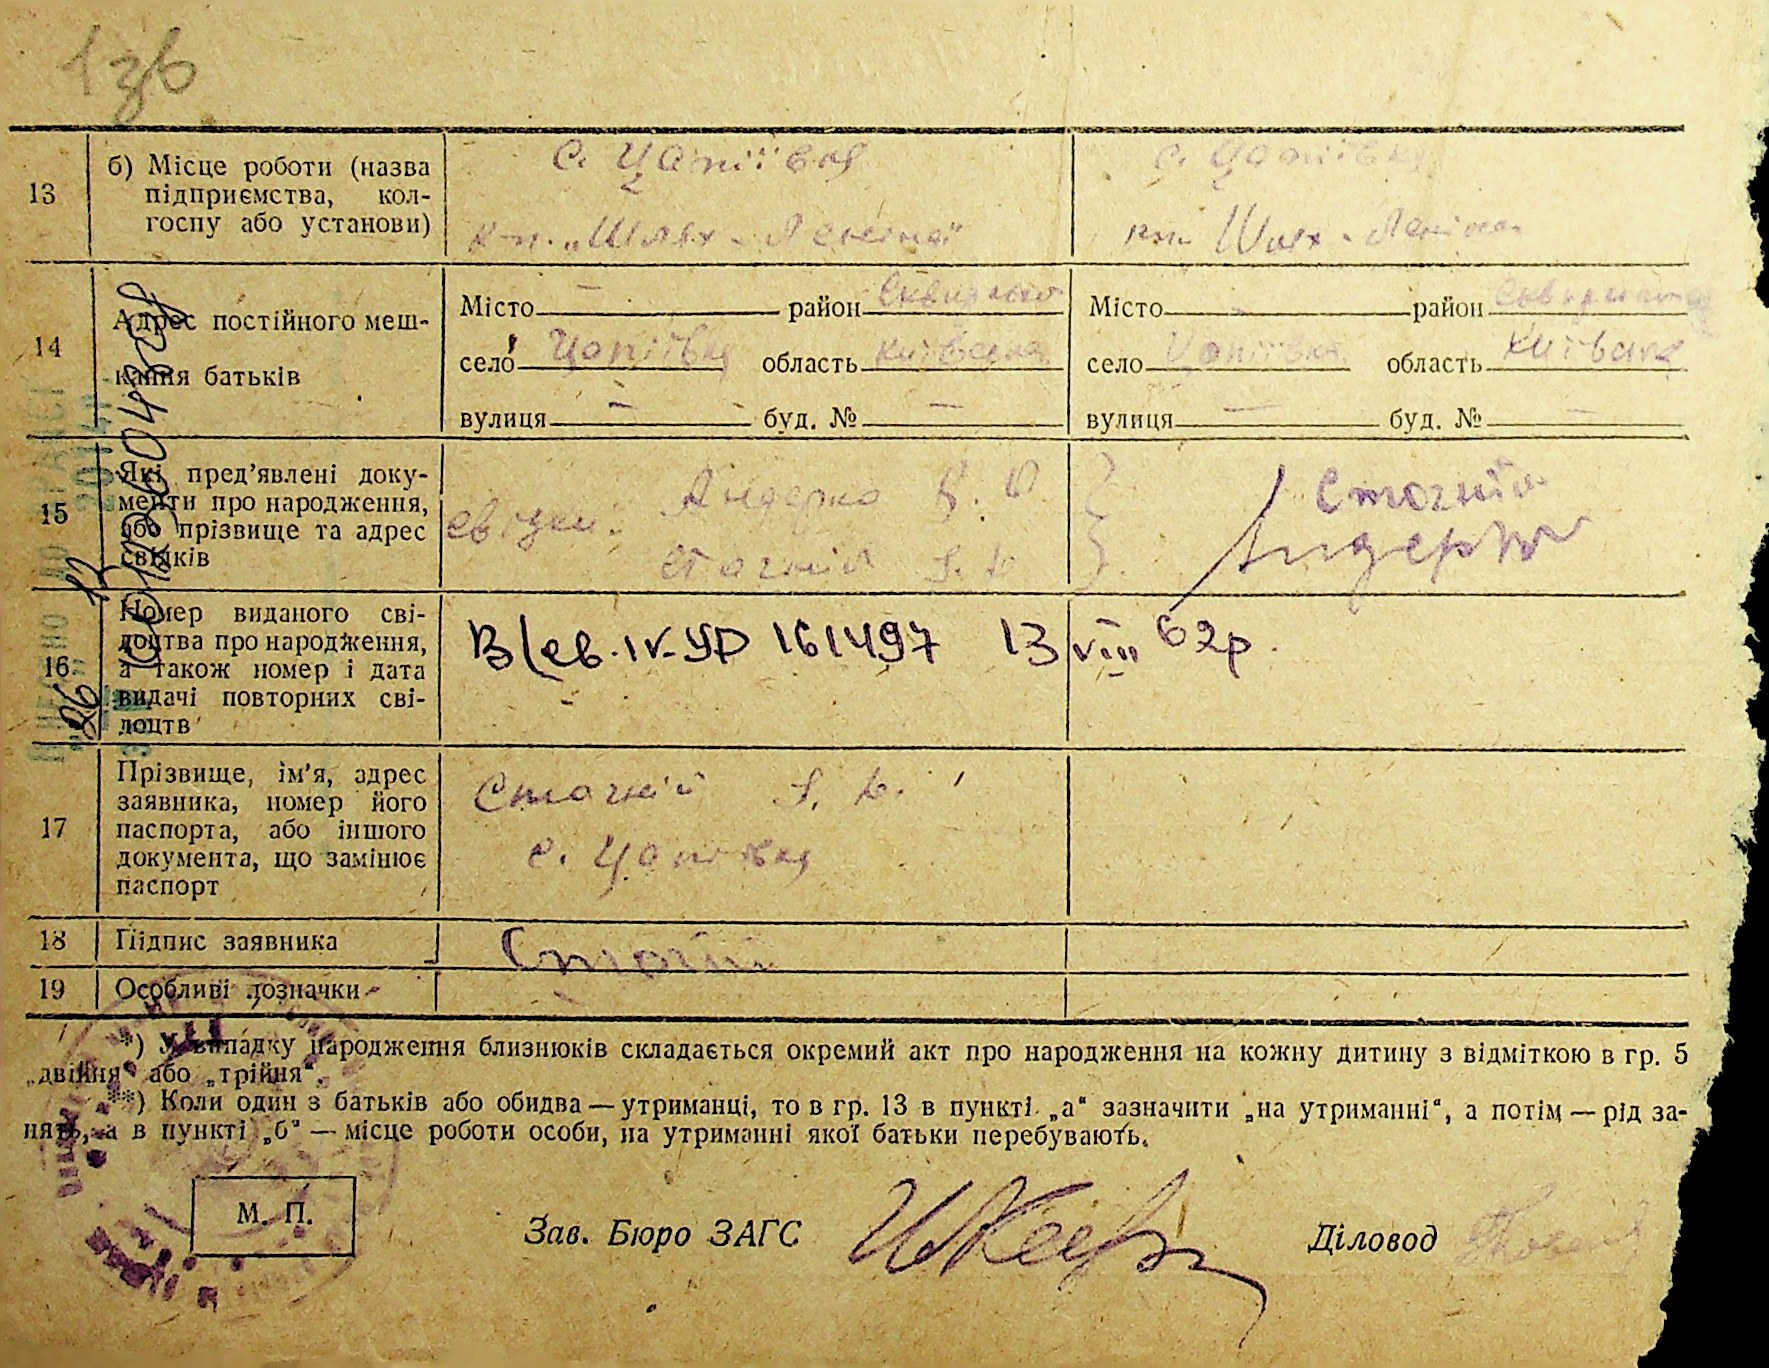 13
б) Місце роботи (назва
підприємства, кол-
госпу або установи)
с. Цапіївка
к-п. „Шлях - Леніна"
с. Цапіївка
Шлях - Леніна
14
Адрес постійного меш-
кання батьків
Місто — район
село Цапіївка область Київська
вулиця — буд. № —
Місто — район
село Цапіївка область Київська
вулиця — буд. № —
15
Які пред'явлені доку-
менти про народження,
або прізвище та адрес
свідків
свідки: Андерко
Стачній
Стачній
Андерко
16
Номер виданого сві-
доцтва про народження,
а також номер і дата
видачі повторних сві-
доцтв
В/св. IV-УР 161497 13 VIII 62р.
17
Прізвище, ім'я, адрес
заявника, номер його
паспорта, або іншого
документа, що замінює
паспорт
Стачній
с. Цапіївка
18
Підпис заявника
19
Особливі дозначки
*) У випадку народження близнюків складається окремий акт про народження на кожну дитину з відміткою в гр. 5
„двійня" або „трійня".
**) Коли один з батьків або обидва — утриманці, то в гр. 13 в пункті „а" зазначити „на утриманні", а потім — рід за-
нять, а в пункті „б" — місце роботи особи, на утриманні якої батьки перебувають.
М. П.
Зав. Бюро ЗАГС
Діловод